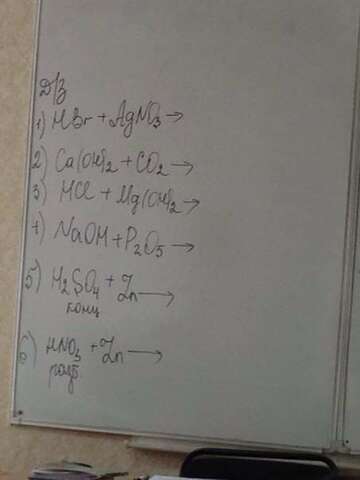 Д/З
1) HBr + AgNO₃ →
2) Ca(OH)₂ + CO₂ →
3) HCl + Mg(OH)₂ →
4) NaOH + P₂O₅ →
5) H₂SO₄ + Zn →
конц
6) HNO₃ + Zn →
разб